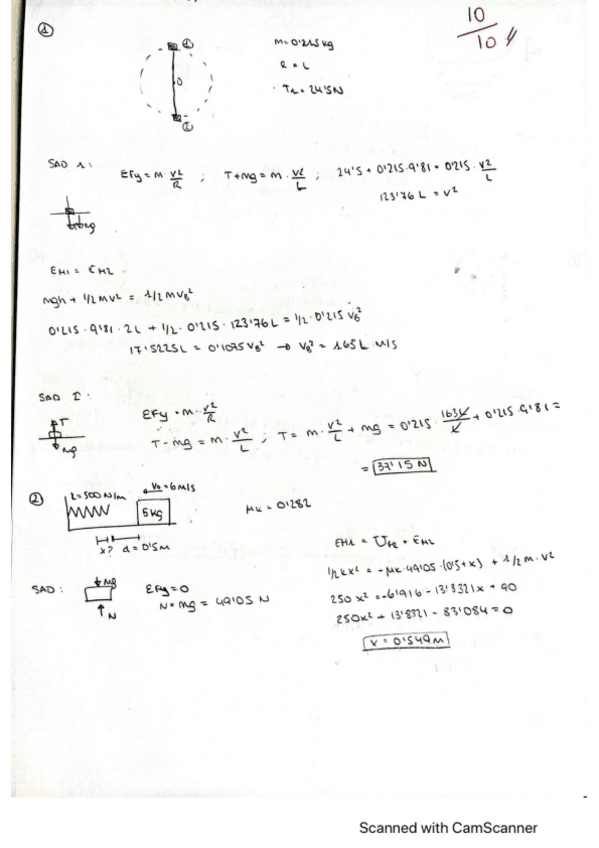 10
10
①
①
M=0'215 kg
R = L
T1=24'5N
O
②
SAD 1:
ΣFy = m · v²/R ; T+mg = m · v²/L ; 24'5 + 0'215·9'81 = 0'215 · v²/L
123'76 L = v²
mg
EM1 = EM2
mgh + 1/2 mv² = 1/2 mvB²
0'215 · 9'81 · 2L + 1/2 · 0'215 · 123'76L = 1/2 · 0'215 vB²
17'5225L = 0'1075 vB² → vB² = 163L m/s
SAD 2:
T
mg
ΣFy = m · v²/R
T - mg = m · v²/L ; T = m · v²/L + mg = 0'215 · 163L/L + 0'215 · 9'81 =
= 37'15 N
②
k=500 N/m
v0=6m/s
5kg
x? d=0'5m
μk = 0'282
SAD:
mg
N
ΣFy=0
N=mg = 49'05 N
EM2 = Ufr + EM2
1/2 kx² = -μk·49'05·(0'5+x) + 1/2 m·v²
250 x² = -6'916 - 13'8321x + 90
250x² + 13'8321 - 83'084=0
x = 0'549m
Scanned with CamScanner